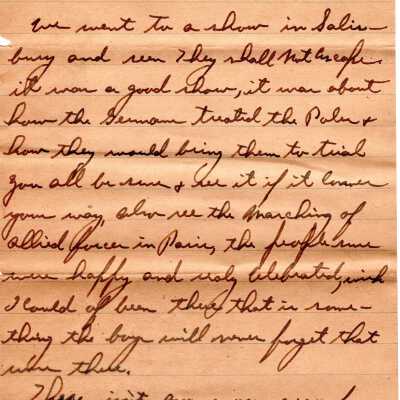 We went to a show in Salis-
bury and seen They shall Not Escape
it was a good show, it was about
how the Germans treated the Poles &
how they would bring them to trial
you all be sure & see it if it comes
your way, also see the Marching of
Allied forces in Paris, the people sure
were happy and realy celebrated, wish
I could of been there that is some-
thing the boys will never forget that
were there.
There isn't